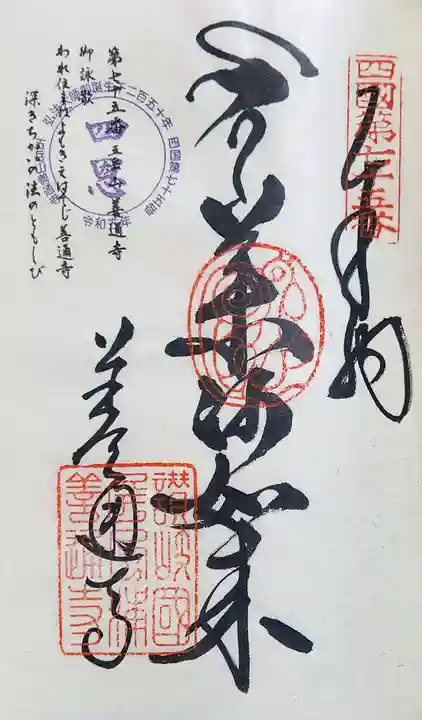 四国第七十五番
奉納
薬師如来
善通寺
讃岐國
善通寺
第七十五番 五岳山 善通寺
御詠歌
われ住まばよもきえはてじ善通寺
深きちかひの法のともしび
弘法大師御誕生千二百五十年
四国第七十五番
四恩